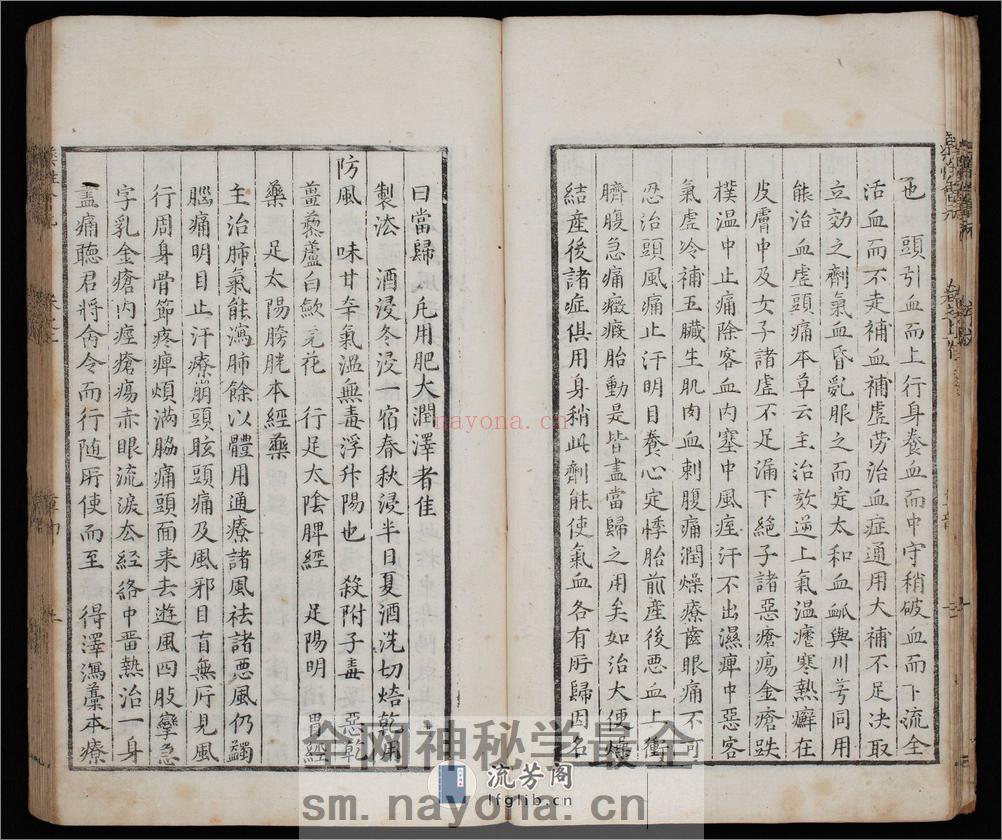 也　頭引血而上行身養血而中守稍破血而下流全
活血而不走補血補虛勞治血症通用大補不足决取
立効之劑氣血昏亂服之而定太和血䘐與川芎同用
能治血虛頭痛本草云主治欬逆上氣温瘧寒熱癬在
皮膚中及女子諸虛不足漏下絶子諸惡瘡瘍金瘡跌
樸温中止痛除客血内塞中風痓汗不出濕痺中惡客
氣虛冷補五臟生肌肉血刺腹痛潤燥療齒眼痛不可
忍治頭風痛止汗明目養心定悸胎前產後惡血上衝
臍腹急痛癥瘕胎動是皆盡當歸之用矣如治大便燥
結産後諸症俱用身稍此劑能使氣血各有所歸因名
曰當歸　凡用肥大潤澤者佳
製法　酒浸冬浸一宿春秋浸半日夏酒洗切焙乾用
防風　味甘辛氣温無毒浮升陽也　殺附子毒　惡乾
薑藜蘆白歛芫花　行足太陰脾經　足陽明　胃經
藥　足太陽膀胱本經藥
主治肺氣能瀉肺餘以體用通療諸風祛諸惡風仍蠲
腦痛明目止汗療崩頭眩頭痛及風邪目盲無所見風
行周身骨節疼痺煩滿脇痛頭面来去遊風四肢攣急
字乳金瘡内痙瘡瘍赤眼流淚厺經絡中畱熱治一身
盡痛聽君將命令而行随所使而至　得澤瀉藁本療
nayona.cn
全网神秘学最全
流芳阁
lfglib.cn
sm.nayona.cn